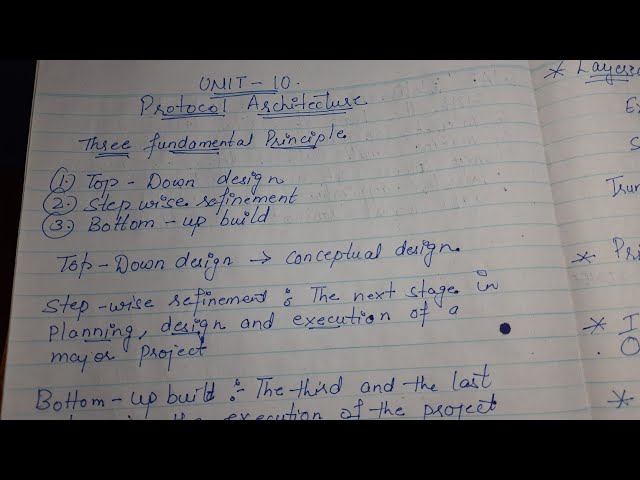 UNIT - 10.
Protocol Architecture
Three fundamental Principle
1. Top - Down design
2. Step wise refinement
3. Bottom - up build
Top - Down design → conceptual design.
Step - wise refinement : The next stage in
planning, design and execution of a
major project
Bottom - up build :- The third and the last
the execution of the project
* Layere
Ex
S
Trun
* Pri
* I
O
*